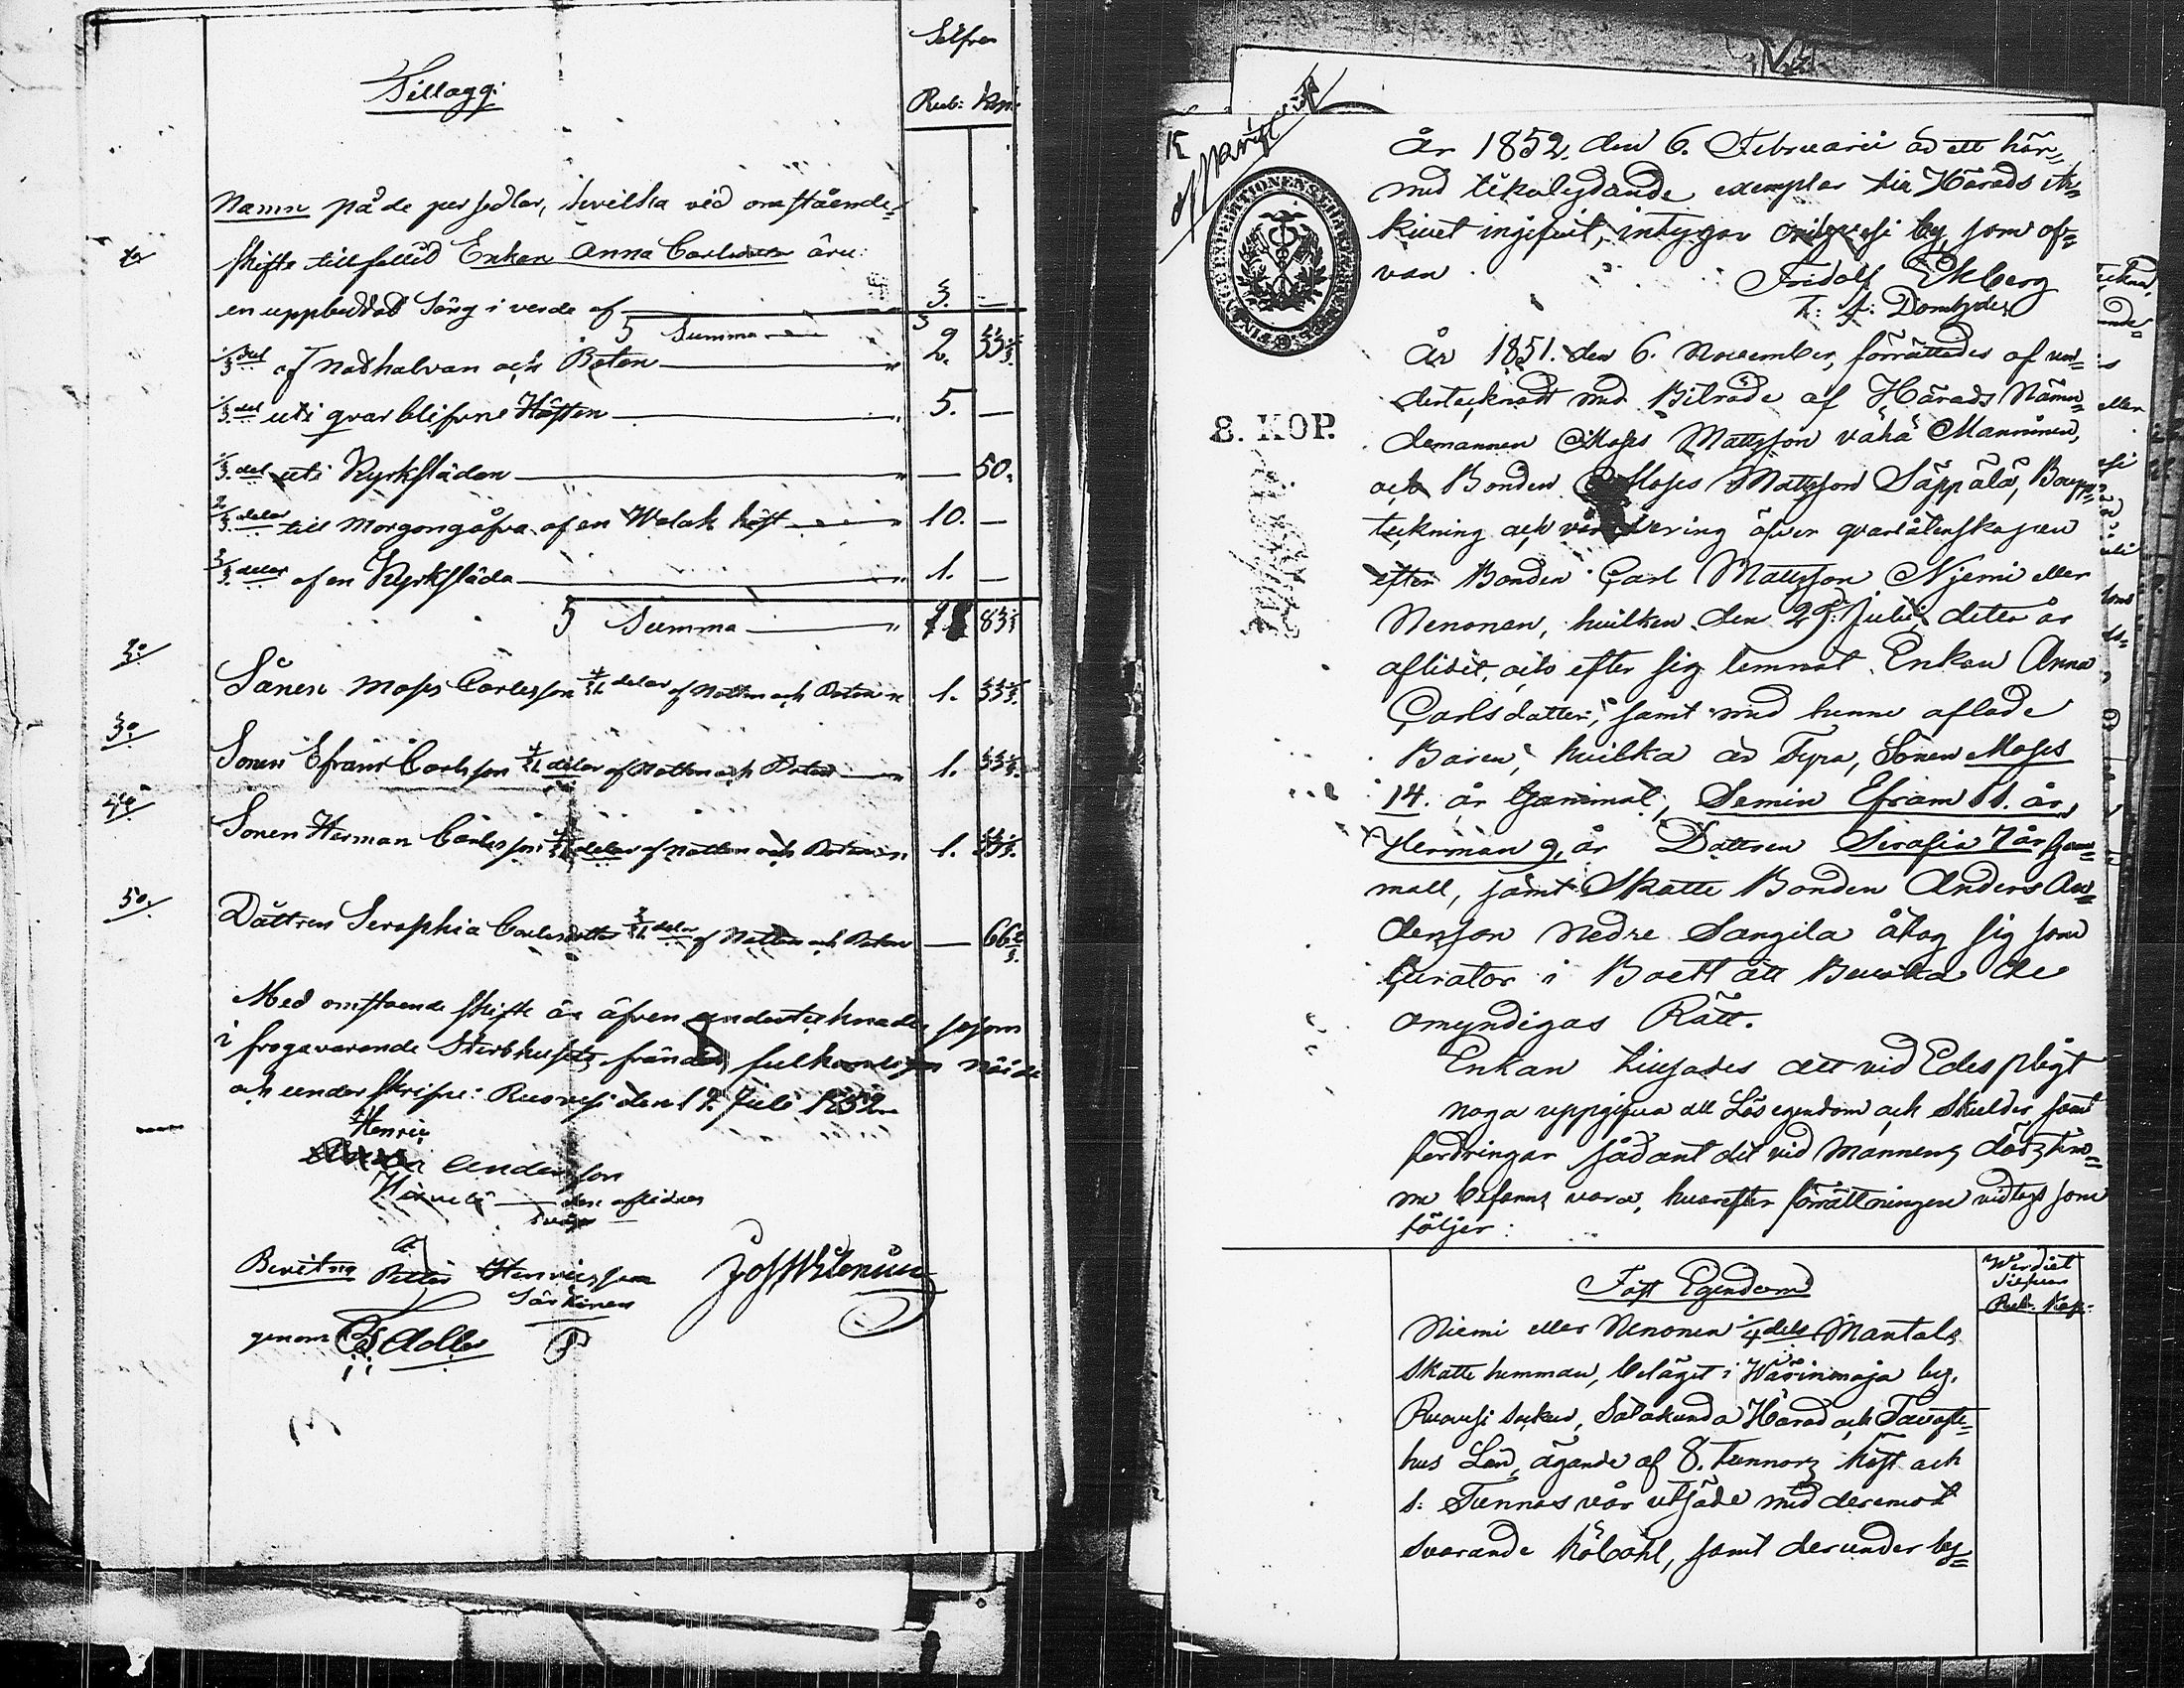 Tillägg:
Silfver
Rub: Kop:
Namn på de persedlar, hvilka vid omstående
1o
skifte tillfallid Enkan Anna Carlsdotter äro:
en uppbäddad Säng i verde af 3. —
S Summa 3
1/3 del af Nothalvan och Båten 2. 33 1/3.
1/3 del uti qvarblifvne Hästen 5. —
1/3 del uti Kyrksläden — 50.
2/3 delar till Morgongåfva af en Walak häst 10. —
2/3 delar af en Kyrksläda 1. —
S Summa 83 1/3
2o
Sånen Moses Carlsson delar af Notten och Båten 1. 33 1/3.
3o
Sonen Efraim Carlsson delar af Notten och Båten 1. 33 1/3.
4o
Sonen Herman Carlsson delar af Notten och Båten 1. 33 1/3.
5o.
Dottren Seraphia Carlsdotter delar af Notten och Båten — 66 2/3.
Med omstående skifte äro äfven undertecknade, såsom
i frågavarande Sterbhusets fränder fulkomligen nöjde
och underskrifve: Ruovesi den 12. Juli 1852
Henric
Andersson
den aflidnes
svåger
Bevitna Petter Henricsson
Särkinen
genom Adler
År 1852. den 6. Februarii är ett här-
med likalydande exemplar till Härads Ar-
kivet ingifvit, intygar Ruovesi by, som of-
van
Fridolf Ekberg
T: f: Domhafvde
FINLANDS EXPEDITIONENS CHARTÆ SIGILLATÆ
8. KOP.
År 1851. den 6. November, förrättades af un-
dertecknadt med Biträde af Härads Näm-
demannen Moses Mattsson vähä Manninen,
och Bonden Moses Mattsson Säppälä, Boupp-
teckning och värdering öfver qvarlåtenskapen
efter Bonden Carl Mattsson Njemi eller
Nenonen, hvilken den 29. Julii detta år
aflidit, och efter sig lemnat Enkan Anna
Carlsdotter, samt med henne aflade
Baren, hvilka är Fyra, Sonen Moses
14. år Gammal, Semin Efraim 11. år,
Herman 9. år Dottren Serafia 7 år gam-
mall, samt Skatte Bonden Anders An-
dersson Nedre Sangila åtog sig som
Curator i Boett att Bevaka de
omyndigas Rätt.
Enkan tillsades att vid Edes pligt
noga uppgifva all Lösegendom och Skulder samt
fordringar sådant det vid Mannens dödstim-
me befanns vara, hvarefter förrättningen vidtogs som
följer:
Fast Egendom
Werdiet
Silfver
Rub. Kop:
Niemi eller Nenonen 1/4 dels Mantals
skatte hemman, beläget i Wäärinmaja by,
Ruovesi socken, Satakunda Härad och Tavaste-
hus Län, ägande af 8. Tunnors höst och
1: Tunnas vår utsäde med deremot
svarande höbohl, samt derunder by-